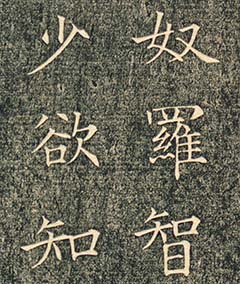 奴羅智
少欲知